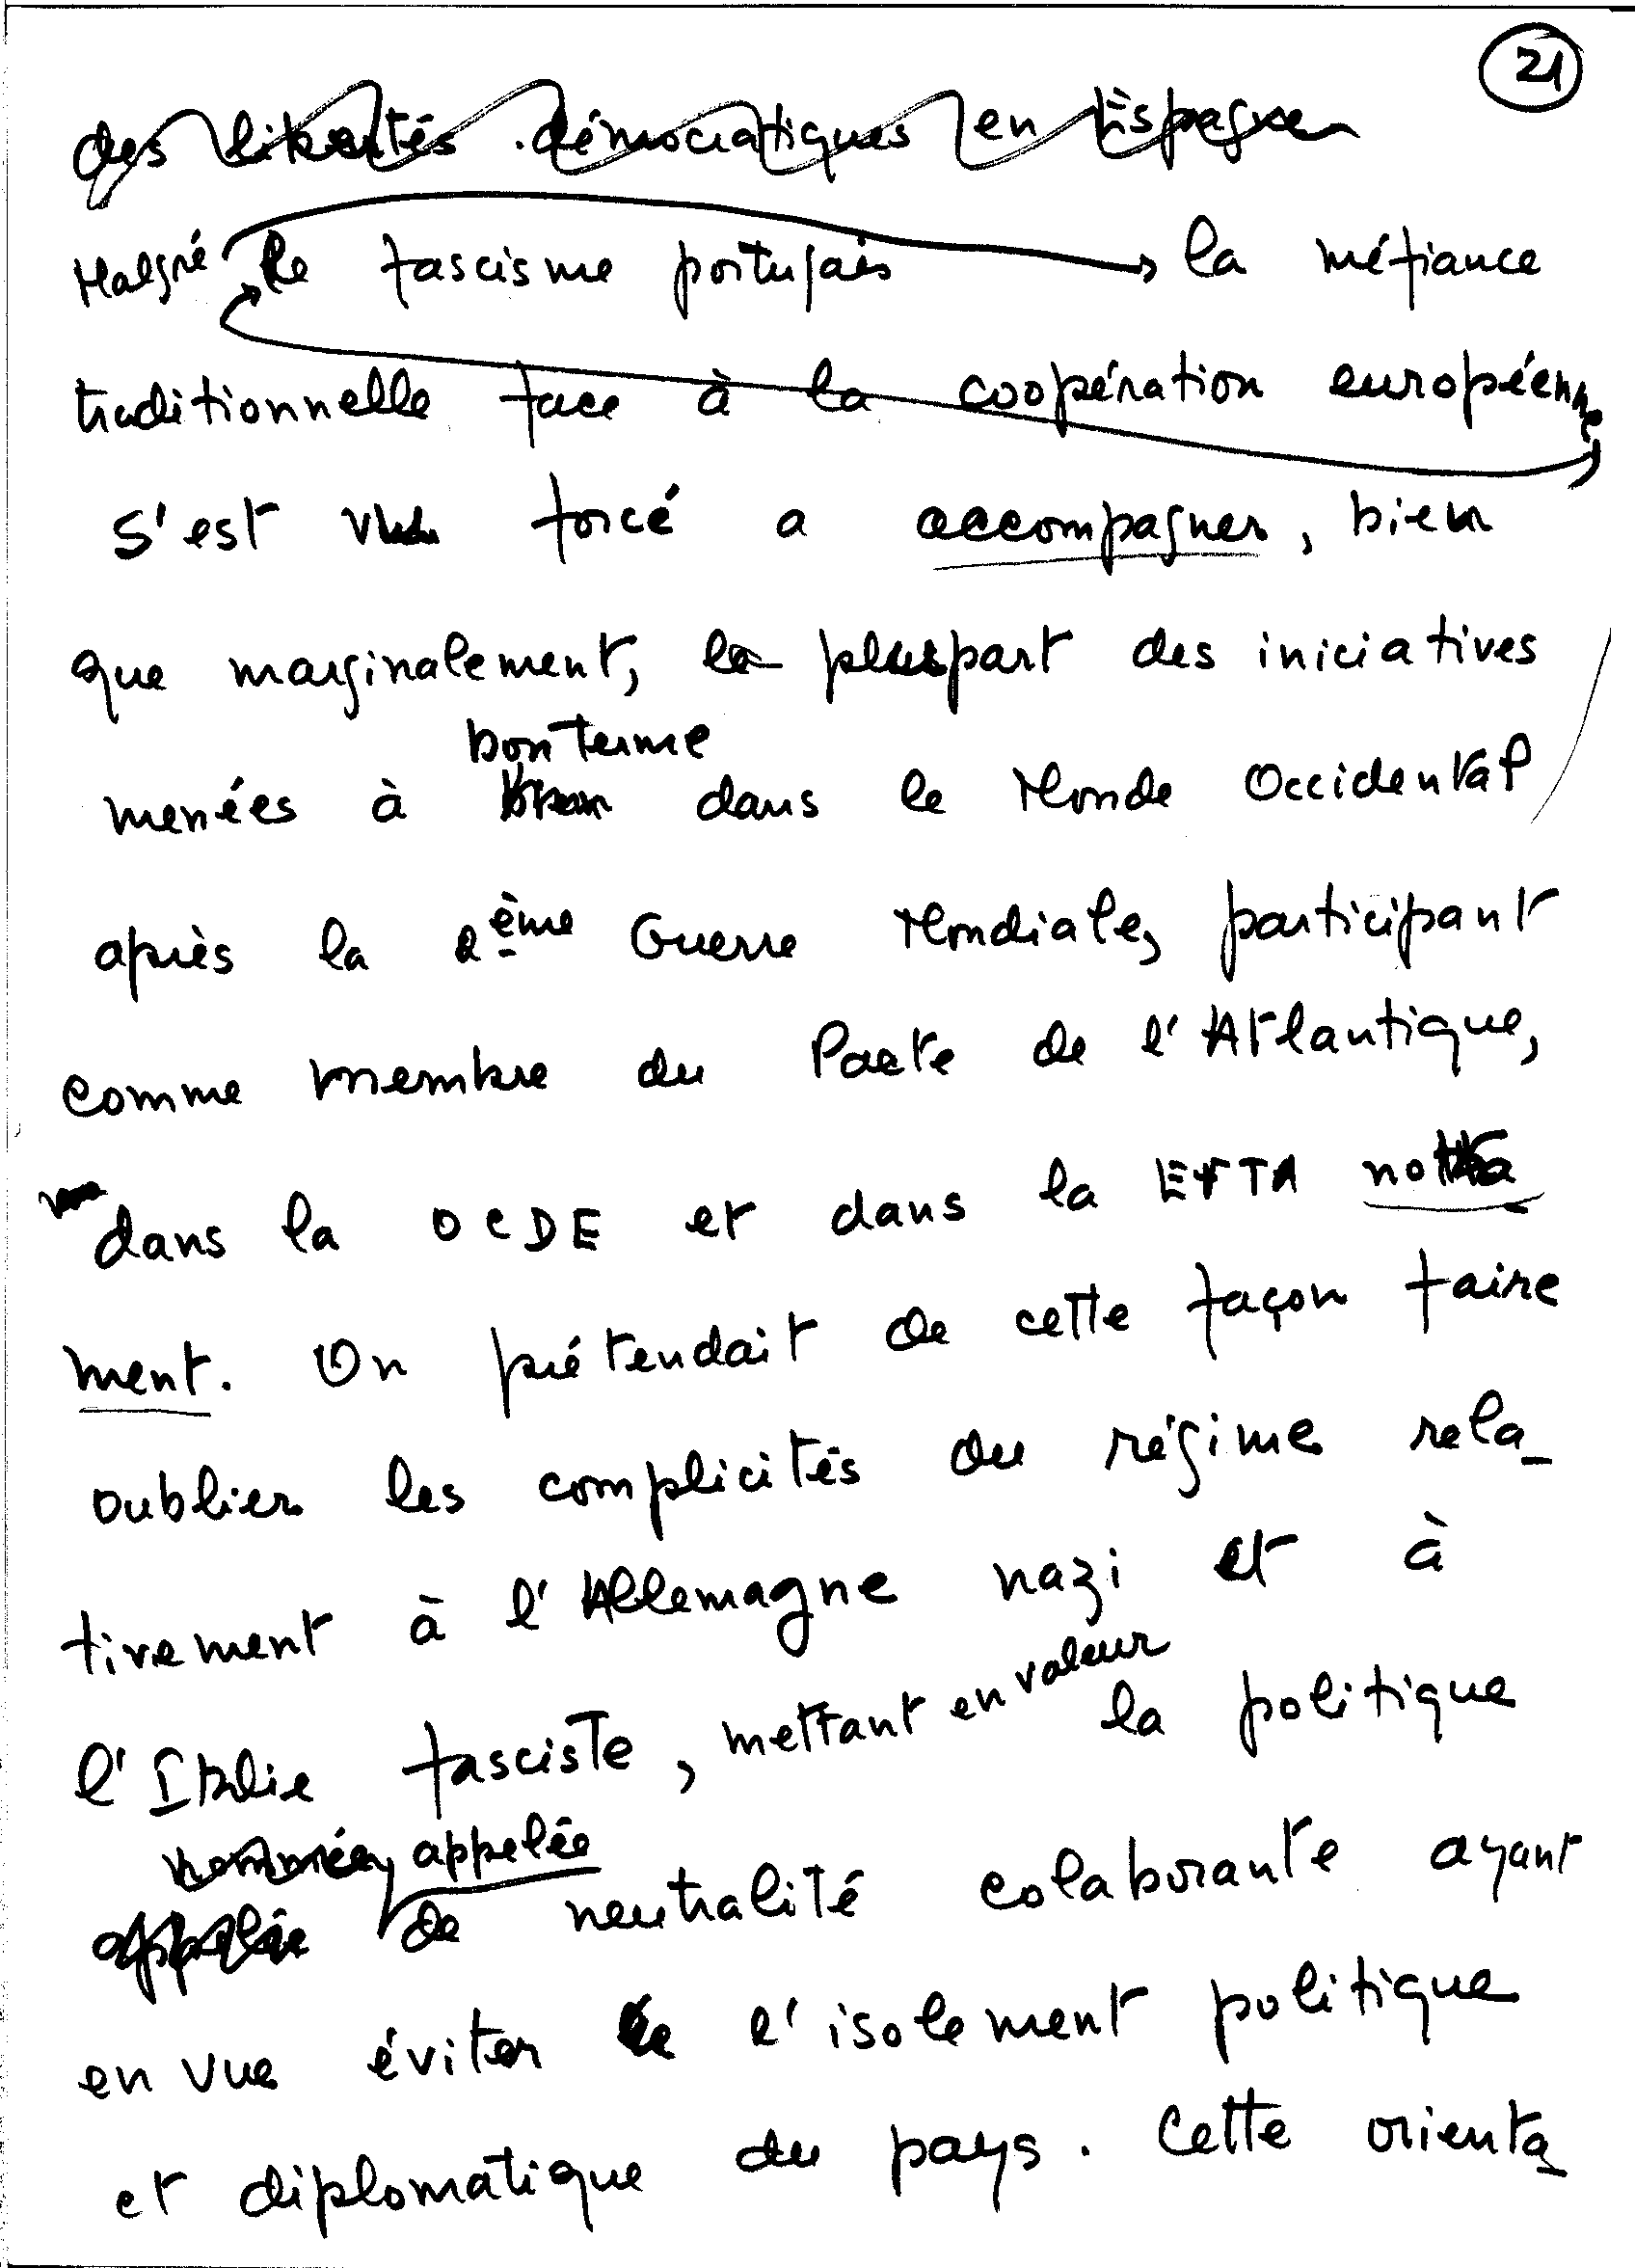 21
des libertés démocratiques en Espagne
Malgré le fascisme portugais la méfiance
traditionnelle face à la coopération européenne
s'est vu forcé a accompagner, bien
que marginalement, la pluspart des iniciatives
bon terme
menées à dans le Monde Occidental
après la 2ème Guerre Mondiale, participant
comme membre du Pacte de l'Atlantique,
dans la OCDE et dans la EFTA nota
ment. On prétendait de cette façon faire
oublier les complicités du régime rela-
tivement à l'Allemagne nazi et à
l'Italie fasciste, mettant en valeur la politique
nommée, appelée
appelée de neutralité colaborante ayant
en vue éviter l'isolement politique
et diplomatique du pays. Cette orienta